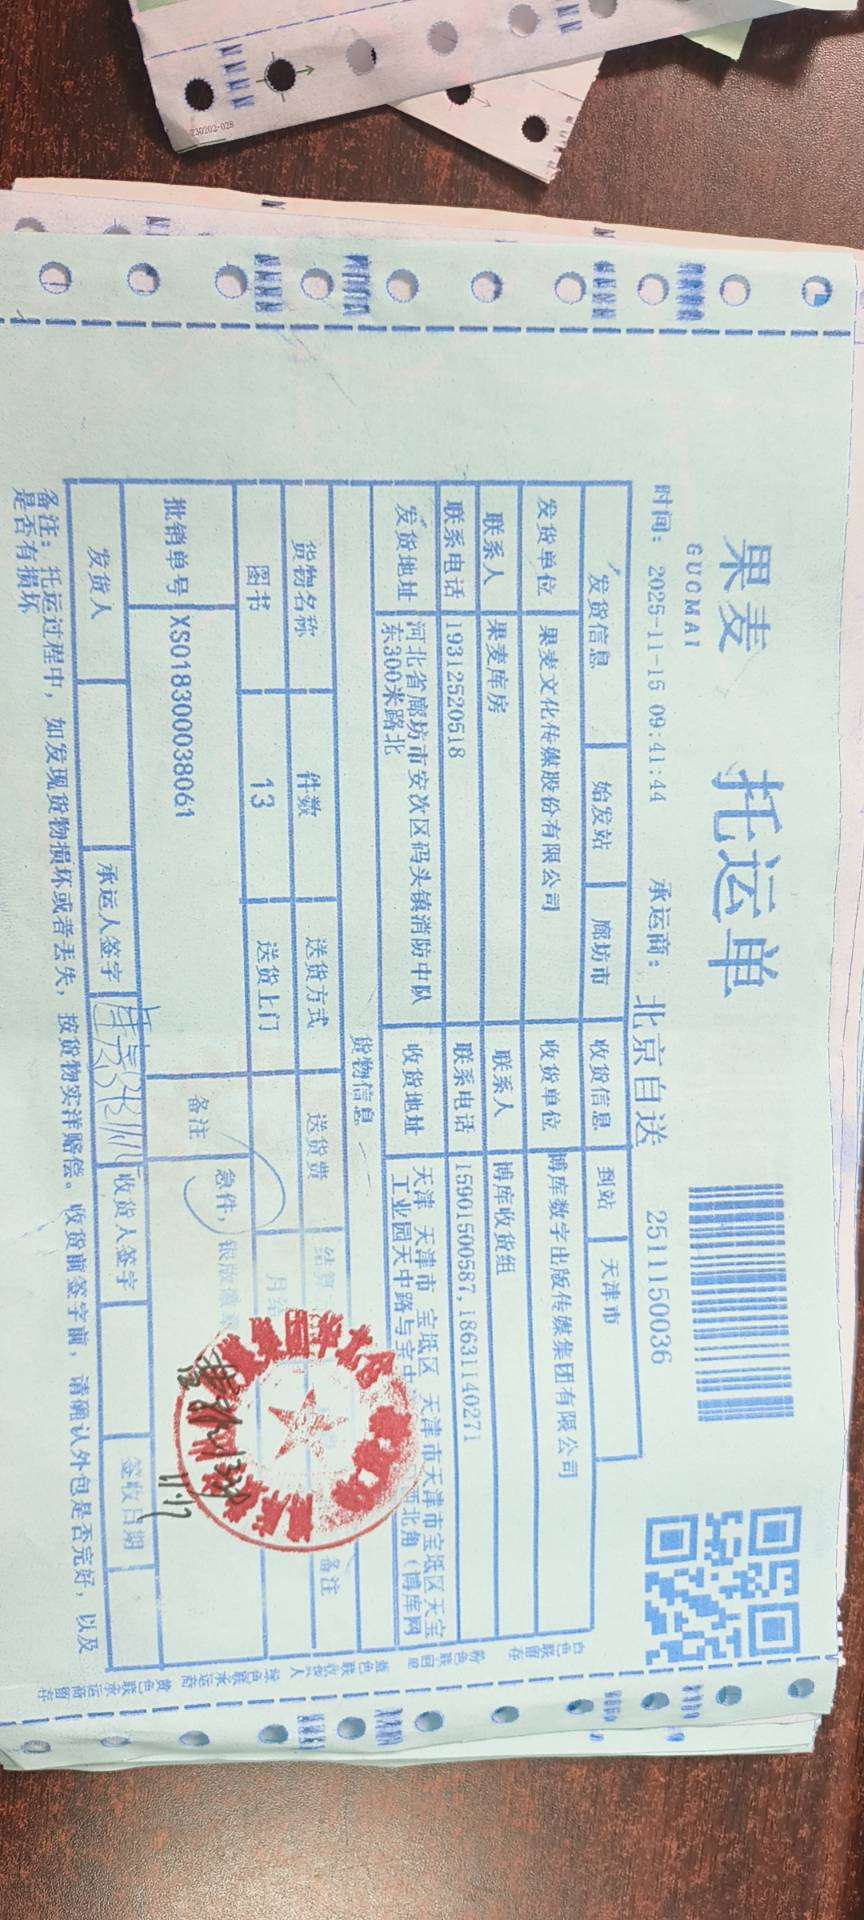 230202-028
果麦 托运单
GUOMAI
时间: 2025-11-15 09:41:44 承运商: 北京自送 2511150036
发货信息 始发站 廊坊市 收货信息 到站 天津市
发货单位 果麦文化传媒股份有限公司 收货单位 博库数字出版传媒集团有限公司
联系人 果麦库房 联系人 博库收货组
联系电话 19312520518 联系电话 15901500587,18631140271
发货地址 河北省廊坊市安次区码头镇消防中队东300米路北 收货地址 天津 天津市 宝坻区 天津市天津市宝坻区天宝工业园天中路与宝中 西北角(博库网
货物信息
货物名称 件数 送货方式 送货费 结算 备注
图书 13 送货上门 月结
批销单号 XS018300038061 备注 急件,
发货人 承运人签字 收货人签字 签收日期
11.17
备注: 托运过程中, 如发现货物损坏或者丢失, 按货物实洋赔偿。收货前签字前, 请确认外包是否完好, 以及
是否有损坏
白色联留存
粉色联回单
蓝色联收货人
绿色联承运商
黄色联承运商留存